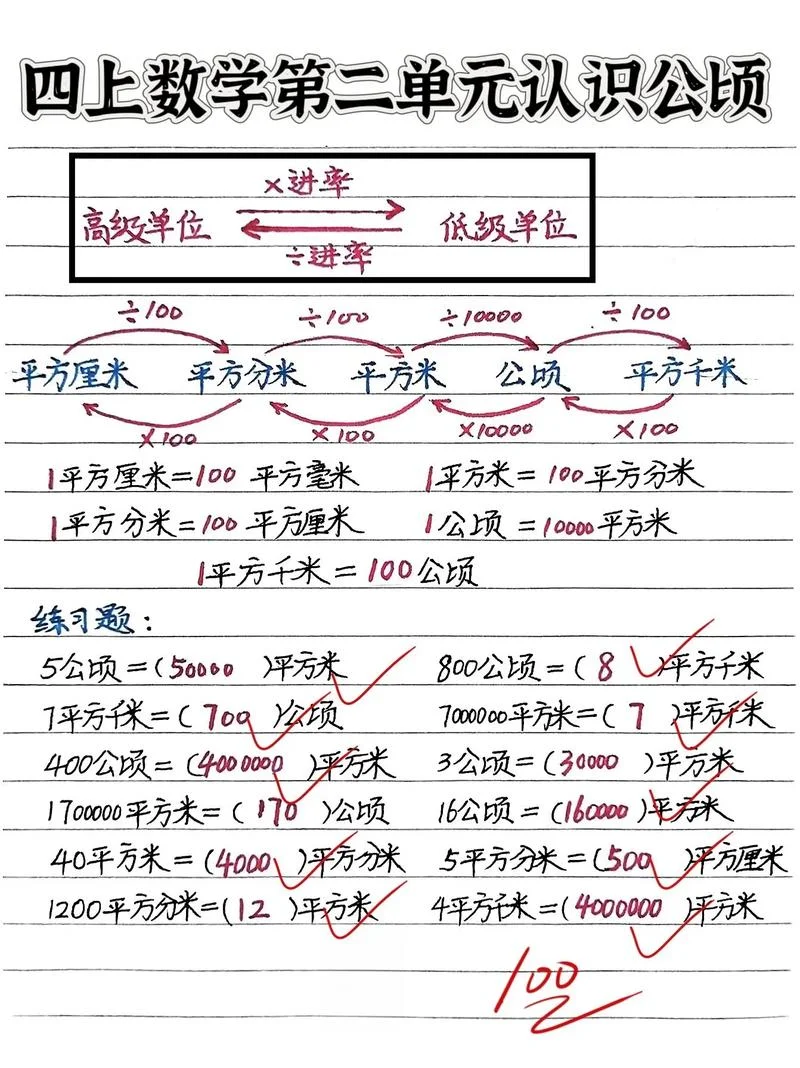 四上数学第二单元认识公顷
×进率
高级单位 低级单位
÷进率
÷100 ÷100 ÷10000 ÷100
平方厘米 平方分米 平方米 公顷 平方千米
×100 ×100 ×10000 ×100
1平方厘米=100平方毫米 1平方米=100平方分米
1平方分米=100平方厘米 1公顷=10000平方米
1平方千米=100公顷
练习题:
5公顷=(50000)平方米 800公顷=(8)平方千米
7平方千米=(700)公顷 7000000平方米=(7)平方千米
400公顷=(4000000)平方米 3公顷=(30000)平方米
1700000平方米=(170)公顷 16公顷=(160000)平方米
40平方米=(4000)平方分米 5平方分米=(500)平方厘米
1200平方分米=(12)平方米 4平方千米=(4000000)平方米
100